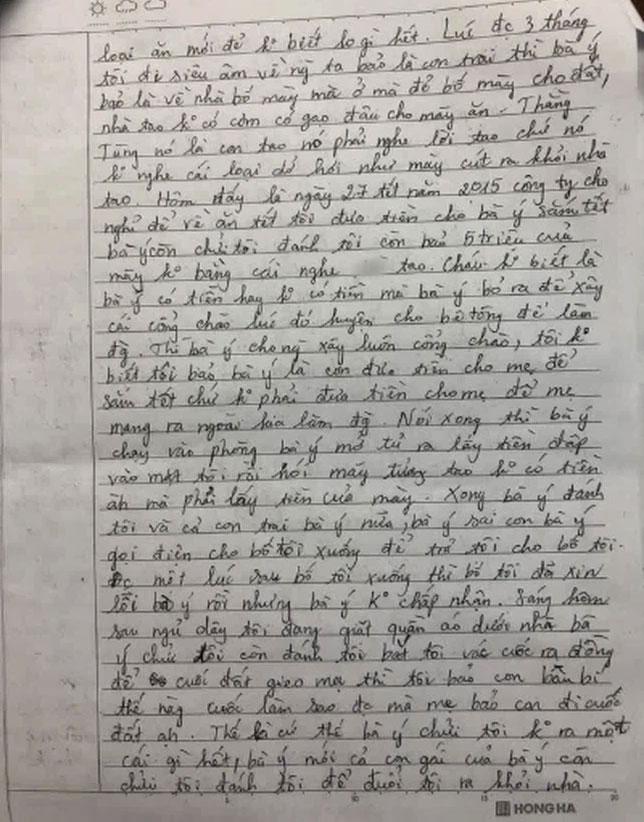 loại ăn mới đẻ k° biết lo gì hết. Lúc đc 3 tháng
tôi đi siêu âm về ng ta bảo là con trai thì bà ý
bảo là về nhà bố mày mà ở mà để bố mày cho đất,
nhà tao k° có cơm có gạo đâu cho mày ăn. Thằng
Tùng nó là con tao nó phải nghe lời tao chứ nó
k° nghe cái loại dở hơi như mày cút ra khỏi nhà
tao. Hôm đấy là ngày 27 tết năm 2015 công ty cho
nghỉ để về ăn tết tôi đưa tiền cho bà ý sắm tết
bà ý còn chửi tôi đánh tôi còn bảo 5 triệu của
mày k° bằng cái nghe tao. Cháu k° biết là
bà ý có tiền hay k° có tiền mà bà ý bỏ ra để xây
cái cổng chào lúc đó huyện cho bê tông để làm
đg. Thì bà ý cho ng xây luôn cổng chào, tôi k°
biết tôi bảo bà ý là con đưa tiền cho mẹ để
sắm tết chứ k° phải đưa tiền cho mẹ để mẹ
mang ra ngoài kia làm đg. Nói xong thì bà ý
chạy vào phòng bà ý mở tủ ra lấy tiền đập
vào mặt tôi rồi hỏi mày tưởng tao k° có tiền
àh mà phải lấy tiền của mày. Xong bà ý đánh
tôi và cả con trai bà ý nữa, bà ý sai con bà ý
gọi điện cho bố tôi xuống để trả tôi cho bố tôi.
Đc một lúc sau bố tôi xuống thì bố tôi đã xin
lỗi bà ý rồi nhưng bà ý k° chấp nhận. Sáng hôm
sau ngủ dậy tôi đang giặt quần áo dưới nhà bà
ý chửi tôi còn đánh tôi bắt tôi vác cuốc ra đồng
để cuốc đất gieo mạ thì tôi bảo con bầu bí
thế này cuốc làm sao đc mà mẹ bảo con đi cuốc
đất ạh. Thế là cứ thế bà ý chửi tôi k° ra một
cái gì hết, bà ý mới cả con gái của bà ý còn
chửi tôi đánh tôi để đuổi tôi ra khỏi nhà.
HONG HA